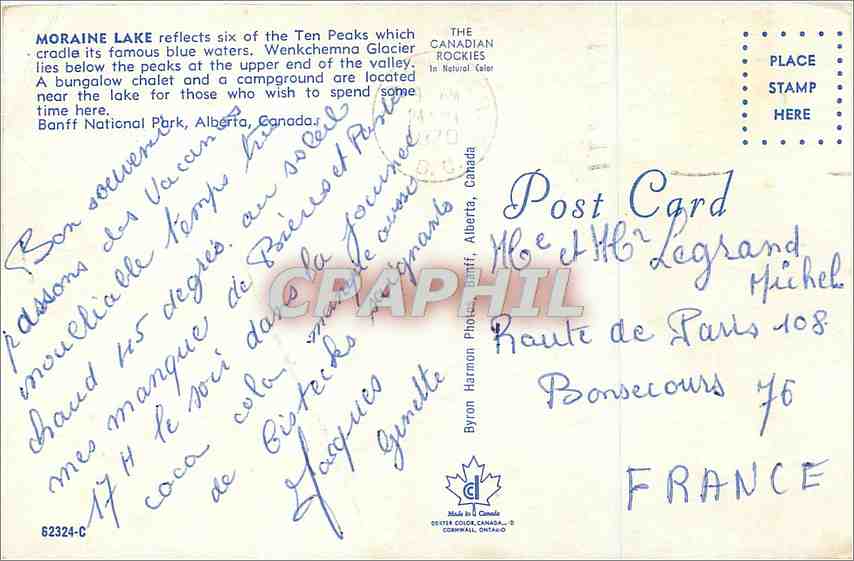 MORAINE LAKE reflects six of the Ten Peaks which
cradle its famous blue waters. Wenkchemna Glacier
lies below the peaks at the upper end of the valley.
A bungalow chalet and a campground are located
near the lake for those who wish to spend some
time here.
Banff National Park, Alberta, Canada.
THE
CANADIAN
ROCKIES
In Natural Color
PLACE
STAMP
HERE
Post Card
Bon souvenir
passons des Vacances
inoubliable temps très
chaud 45 degrés. au soleil
mes manque de Bières et Pastis
17 H le soir dans la journée
coca cola manque aussi
de Bistecks saignants
Jacques
Ginette
CPARHIL
Byron Harmon Photos, Banff, Alberta, Canada
Me et Mr Legrand
Michel
Route de Paris 108
Bonsecours 76
FRANCE
Made in Canada
DEXTER COLOR, CANADA
CORNWALL, ONTARIO
62324-C